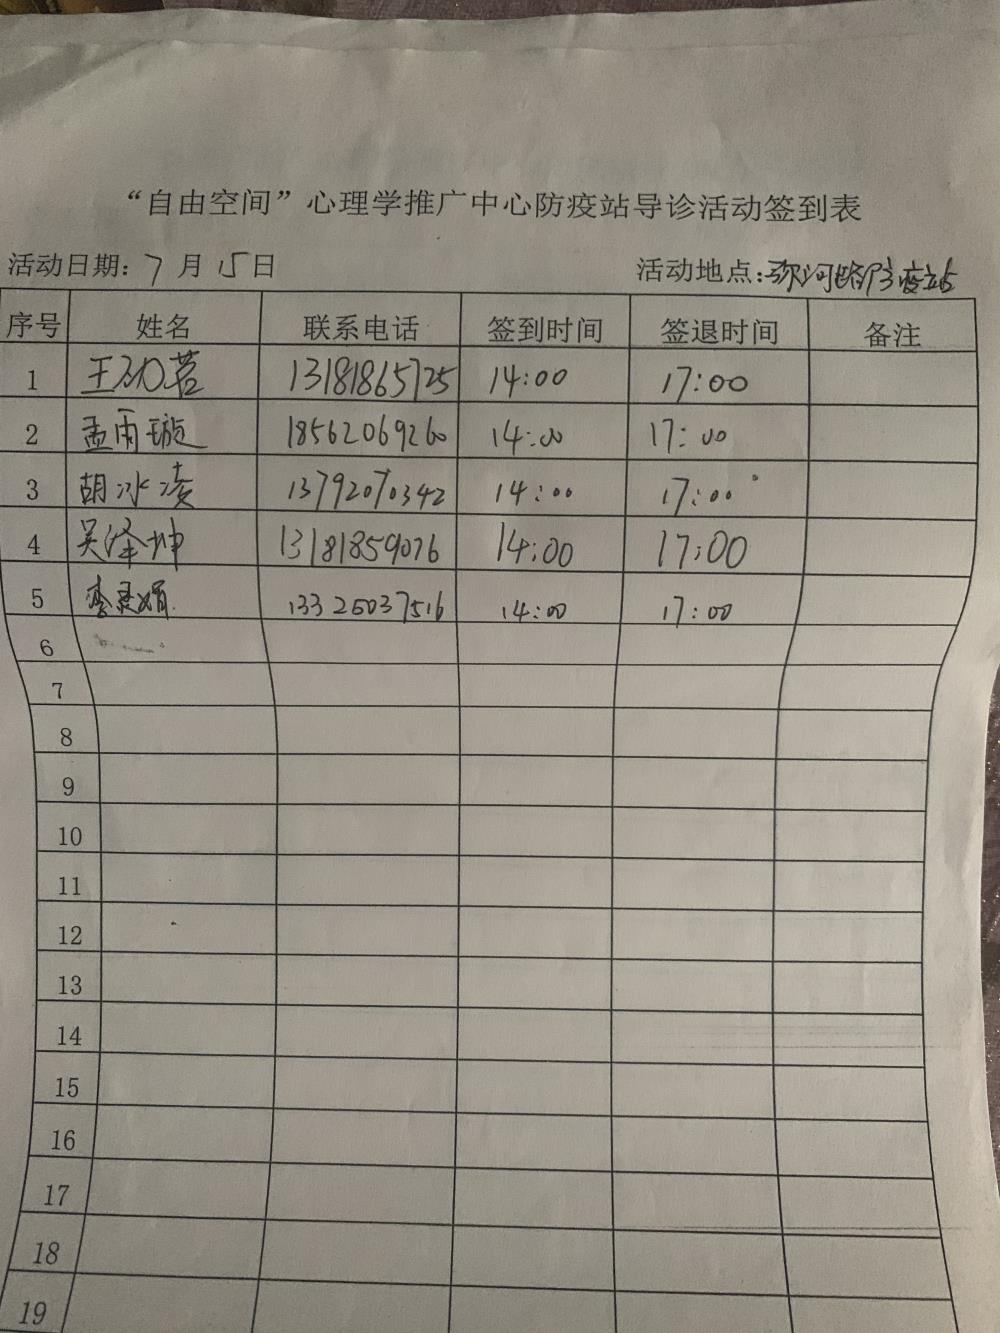 “自由空间”心理学推广中心防疫站导诊活动签到表
活动日期：7月15日 活动地点：弥河路防疫站
序号 姓名 联系电话 签到时间 签退时间 备注
1 王 若 13181865725 14:00 17:00
2 孟雨璇 18562069260 14:00 17:00
3 胡冰凌 13792070342 14:00 17:00
4 吴泽坤 13181859076 14:00 17:00
5 李 娟 13325037516 14:00 17:00
6
7
8
9
10
11
12
13
14
15
16
17
18
19